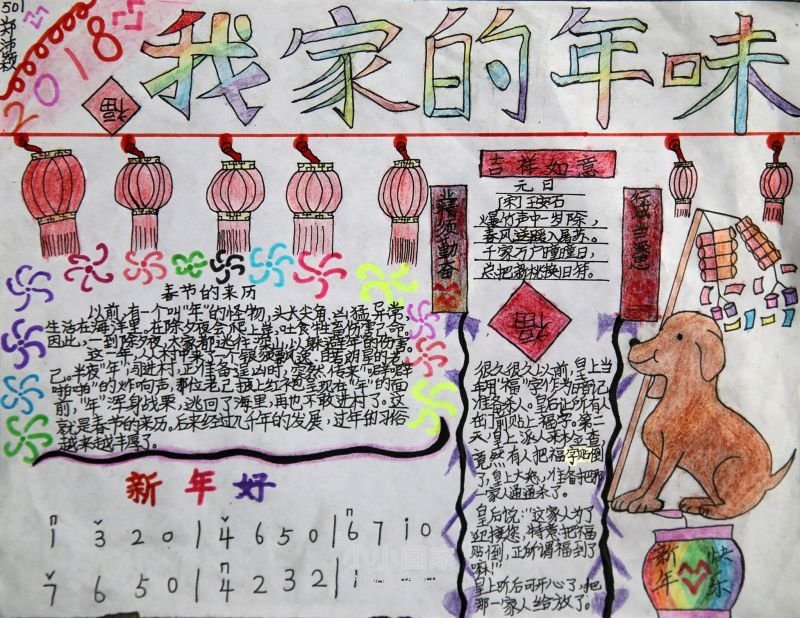 501
郑沛颖
2018
福
我家的年味
吉祥如意
元日
[宋]王安石
爆竹声中一岁除，
春风送暖入屠苏。
千家万户曈曈日，
总把新桃换旧符。
福
春节的来历
以前，有一个叫"年"的怪物，头大尖角，凶猛异常，
生活在海洋里，在除夕夜会爬上岸，吐食牲畜伤害人命，
因此，一到除夕夜，大家都逃往深山，以躲避年的伤害。
这一年，从村中来了一个银须飘逸、目若朗星的老
己。半夜"年"闯进村，正准备逞凶时，突然传来"噼噼
啪啪"的炸响声，那位老己披上红袍出现在"年"的面
前，"年"浑身战果，逃回了海里，再也不敢进村了。这
就是春节的来历，后来经过几千年的发展，过年的习俗
越来越丰厚了。
很久很久以前，皇上
年用"福"字作为后前记
准备杀人。皇后让所有人
在门前贴上福字。第二
天，皇上派人来检查，
竟然有人把福字贴倒
了，皇上大怒，准备把那
一家人通通杀了。
皇后说："这家人为了
迎接您，特意把福
贴倒，正所谓福到了
嘛！"
皇上听后可开心了，把
那一家人给放了。
新年好
1 3 2 0 | 4 6 5 0 | 6 7 1 0
7 6 5 0 | 4 2 3 2 | 1
新年
快乐
小小画家